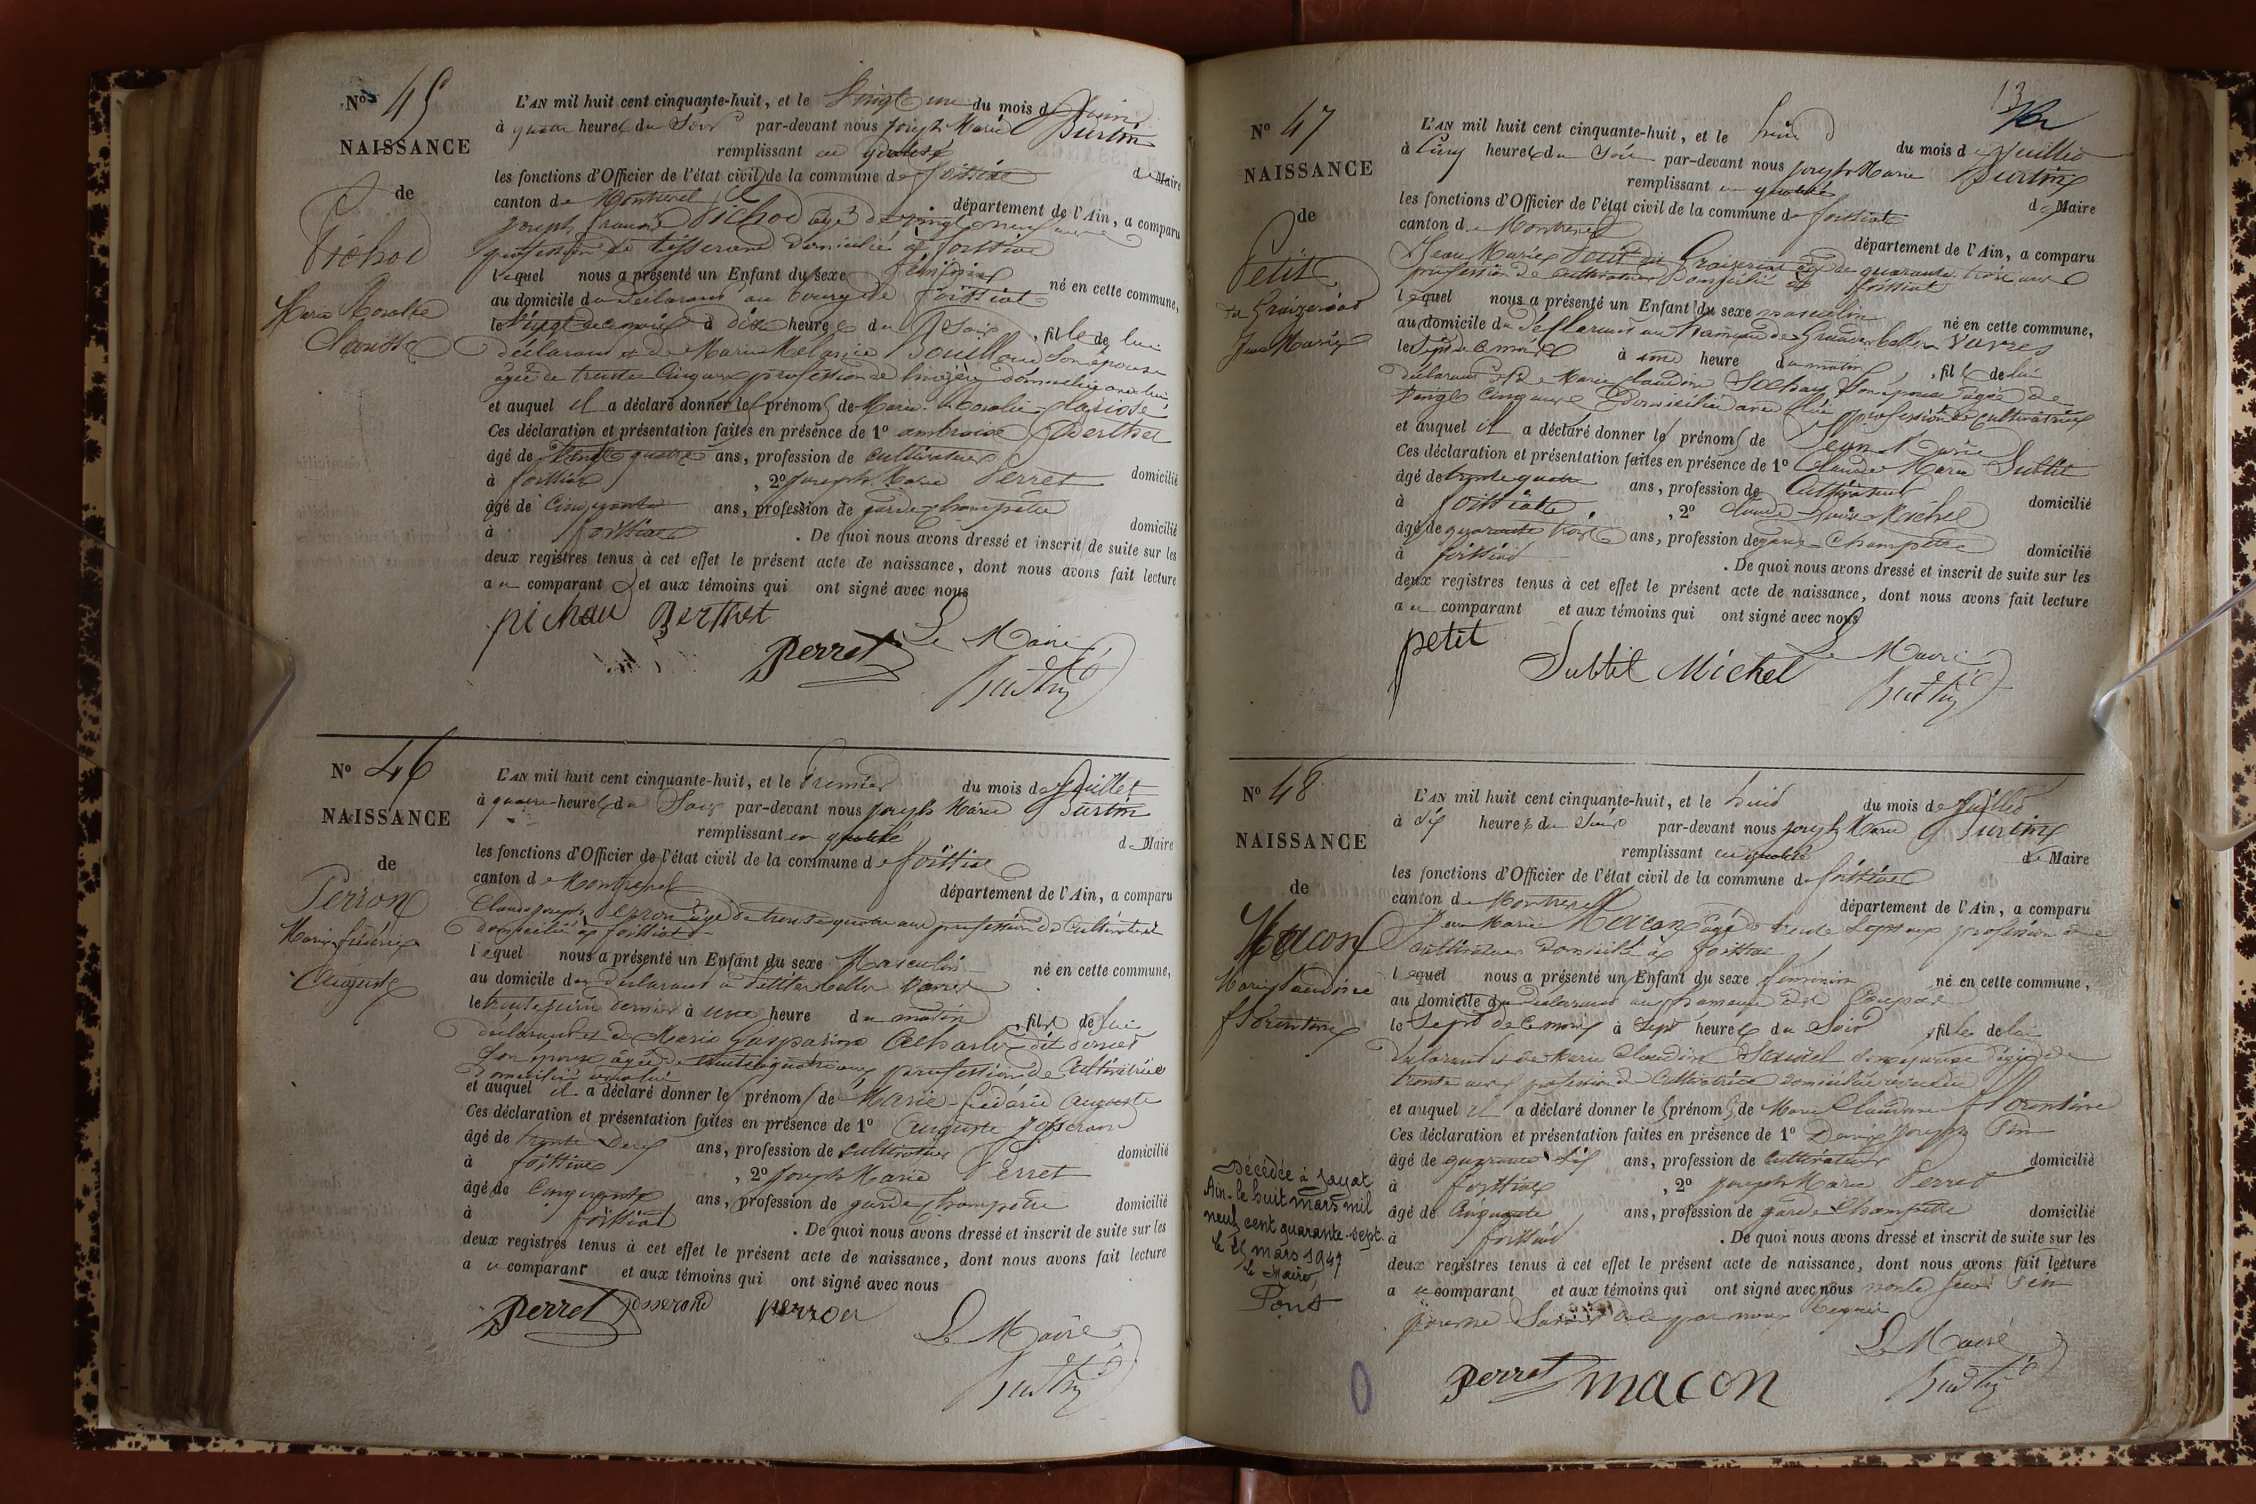 N° 45
NAISSANCE
de
Pichod
Marie Rosalie
Clarisse
L'AN mil huit cent cinquante-huit, et le Vingt un du mois de Juin
à quatre heures du Soir par-devant nous Joseph Marie Burtin
remplissant en qualité de Maire
les fonctions d'Officier de l'état civil de la commune de foissiat
canton de Montrevel département de l'Ain, a comparu
Joseph françois Pichod âgé de vingt neuf ans
profession de tisserand domicilié à foissiat
lequel nous a présenté un Enfant du sexe féminin né en cette commune,
au domicile du déclarant au bourg de foissiat
le Vingt de ce mois à dix heures du Soir, fille de lui
déclarant et de Marie Melanie Bouilloud son épouse
âgée de trente cinq ans profession de domiciliée avec lui
et auquel il a déclaré donner les prénoms de Marie Rosalie Clarisse
Ces déclaration et présentation faites en présence de 1° ambroise Berthet
âgé de quatre ans, profession de Cultivateur domicilié
à foissiat, 2° Joseph Marie Perret
âgé de Cinquante ans, profession de garde Champêtre domicilié
à foissiat. De quoi nous avons dressé et inscrit de suite sur les
deux registres tenus à cet effet le présent acte de naissance, dont nous avons fait lecture
au comparant et aux témoins qui ont signé avec nous
pichod Berthet
Perret Le Maire
Burtin
N° 46
NAISSANCE
de
Perron
Marie frédéric
Auguste
L'AN mil huit cent cinquante-huit, et le Premier du mois de Juillet
à quatre heures du Soir par-devant nous Joseph Marie Burtin
remplissant en qualité de Maire
les fonctions d'Officier de l'état civil de la commune de foissiat
canton de Montrevel département de l'Ain, a comparu
Claude Joseph Perron âgé de trente quatre ans profession de Cultivateur
domicilié à foissiat
lequel nous a présenté un Enfant du sexe Masculin né en cette commune,
au domicile du déclarant à
le trente juin dernier à une heure du matin, fils de lui
déclarant et de Marie Gasparine
son épouse âgée de trente quatre ans profession de Cultivatrice
domiciliée avec lui
et auquel il a déclaré donner les prénoms de Marie frédéric Auguste
Ces déclaration et présentation faites en présence de 1° Auguste Josserand
âgé de trente deux ans, profession de cultivateur domicilié
à foissiat, 2° Joseph Marie Perret
âgé de Cinquante ans, profession de garde Champêtre domicilié
à foissiat. De quoi nous avons dressé et inscrit de suite sur les
deux registres tenus à cet effet le présent acte de naissance, dont nous avons fait lecture
au comparant et aux témoins qui ont signé avec nous
Perret Josserand perron
Le Maire
Burtin
13
N° 47
NAISSANCE
de
Petit
dit Graizeriat
Jean Marie
L'AN mil huit cent cinquante-huit, et le huit du mois de Juillet
à Cinq heures du Soir par-devant nous Joseph Marie Burtin
remplissant en qualité de Maire
les fonctions d'Officier de l'état civil de la commune de foissiat
canton de Montrevel département de l'Ain, a comparu
Jean Marie Petit dit Graizeriat âgé de quarante trois ans
profession de Cultivateur domicilié à foissiat
lequel nous a présenté un Enfant du sexe masculin né en cette commune,
au domicile du déclarant au hameau des
le Sept de ce mois à une heure du matin, fils de lui
déclarant et de Marie Claudine son épouse âgée de
Vingt Cinq ans domiciliée avec lui profession de cultivatrice
et auquel il a déclaré donner les prénoms de Jean Marie
Ces déclaration et présentation faites en présence de 1° Claude Marie Subtil
âgé de trente quatre ans, profession de Cultivateur domicilié
à foissiat, 2° Claude Louis Michel
âgé de quarante trois ans, profession de garde Champêtre domicilié
à foissiat. De quoi nous avons dressé et inscrit de suite sur les
deux registres tenus à cet effet le présent acte de naissance, dont nous avons fait lecture
au comparant et aux témoins qui ont signé avec nous
petit Le Maire
Subtil Michel Burtin
N° 48
NAISSANCE
de
Macon
Marie Claudine
florentine
Décédée à Jayat
Ain- le huit mars mil
neuf cent quarante-sept.
le 15 mars 1947
Le Maire,
Pont
L'AN mil huit cent cinquante-huit, et le huit du mois de Juillet
à Six heures du Soir par-devant nous Joseph Marie Burtin
remplissant en qualité de Maire
les fonctions d'Officier de l'état civil de la commune de foissiat
canton de Montrevel département de l'Ain, a comparu
Jean Marie Macon âgé de trente Sept ans profession de
cultivateur domicilié à foissiat
lequel nous a présenté un Enfant du sexe féminin né en cette commune,
au domicile du déclarant au hameau de
le Sept de ce mois à Sept heures du Soir, fille de lui
déclarant et de Marie Claudine son épouse âgée de
trente ans profession de Cultivatrice domiciliée avec lui
et auquel il a déclaré donner les prénoms de Marie Claudine florentine
Ces déclaration et présentation faites en présence de 1° Denis Joseph Pin
âgé de quarante Six ans, profession de Cultivateur domicilié
à foissiat, 2° Joseph Marie Perret
âgé de Cinquante ans, profession de garde Champêtre domicilié
à foissiat. De quoi nous avons dressé et inscrit de suite sur les
deux registres tenus à cet effet le présent acte de naissance, dont nous avons fait lecture
au comparant et aux témoins qui ont signé avec nous
Savoir par nous Requis
Le Maire
Perret macon Burtin